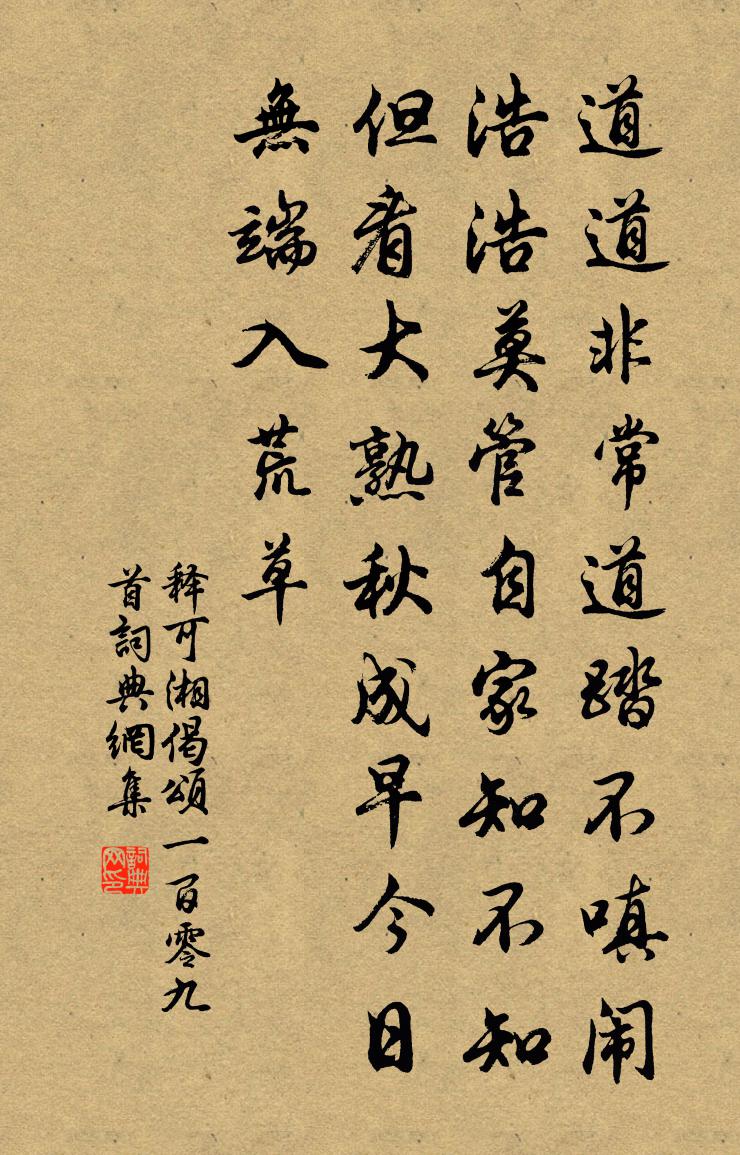 道道非常道踏不嗔闹
浩浩莫管自家知不知
但看大熟秋成早今日
無端入荒草
释可湘偈頌一百零九
首詞典網集
詞典网印